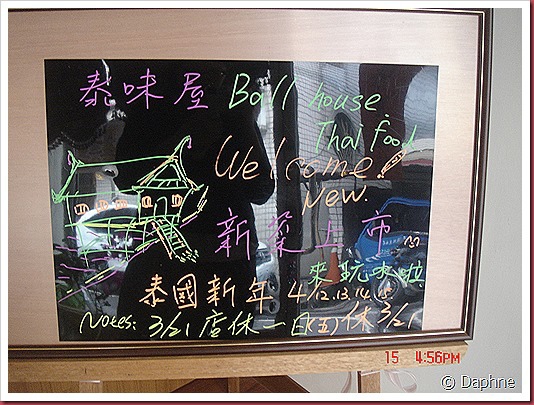 泰味屋 Ball house.
Thai food
Welcome!
New.
新菜上市
來玩水啦
泰國新年 4/12.13.14.15
Notes: 3/21 店休一日(五)休 3/21
15 4:56PM
© Daphne